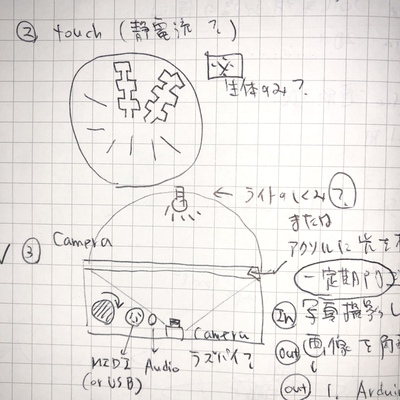 ② touch (静電流 ?)
生体のみ?
← ライトのしくみ?
または
Camera
アクリルに光を
③
一定期的
In 写真撮影し
Camera
ラズパイ?
Out 画像を
MIDI Audio
(or USB)
out 1. Ardui